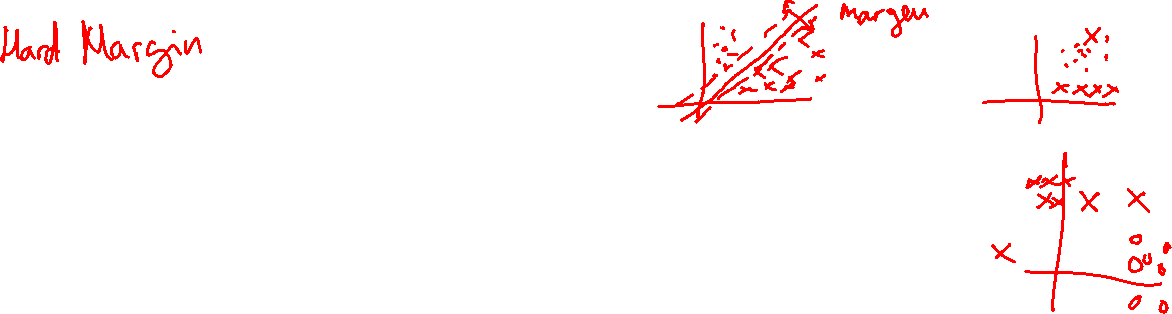 Hard Margin
Margen